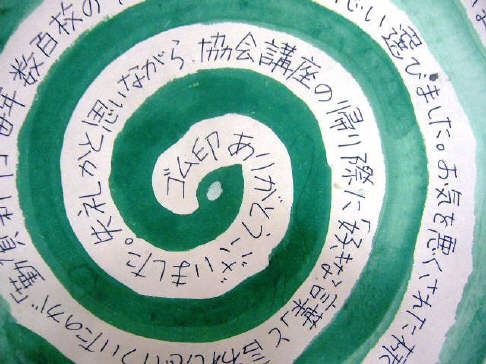 ゴム印ありがとうございました。失礼かと思いながら、協会講座の帰り際に「好きな言葉」と言われ思いついたのが「動
数百枚の
選びました。お気を悪くされた